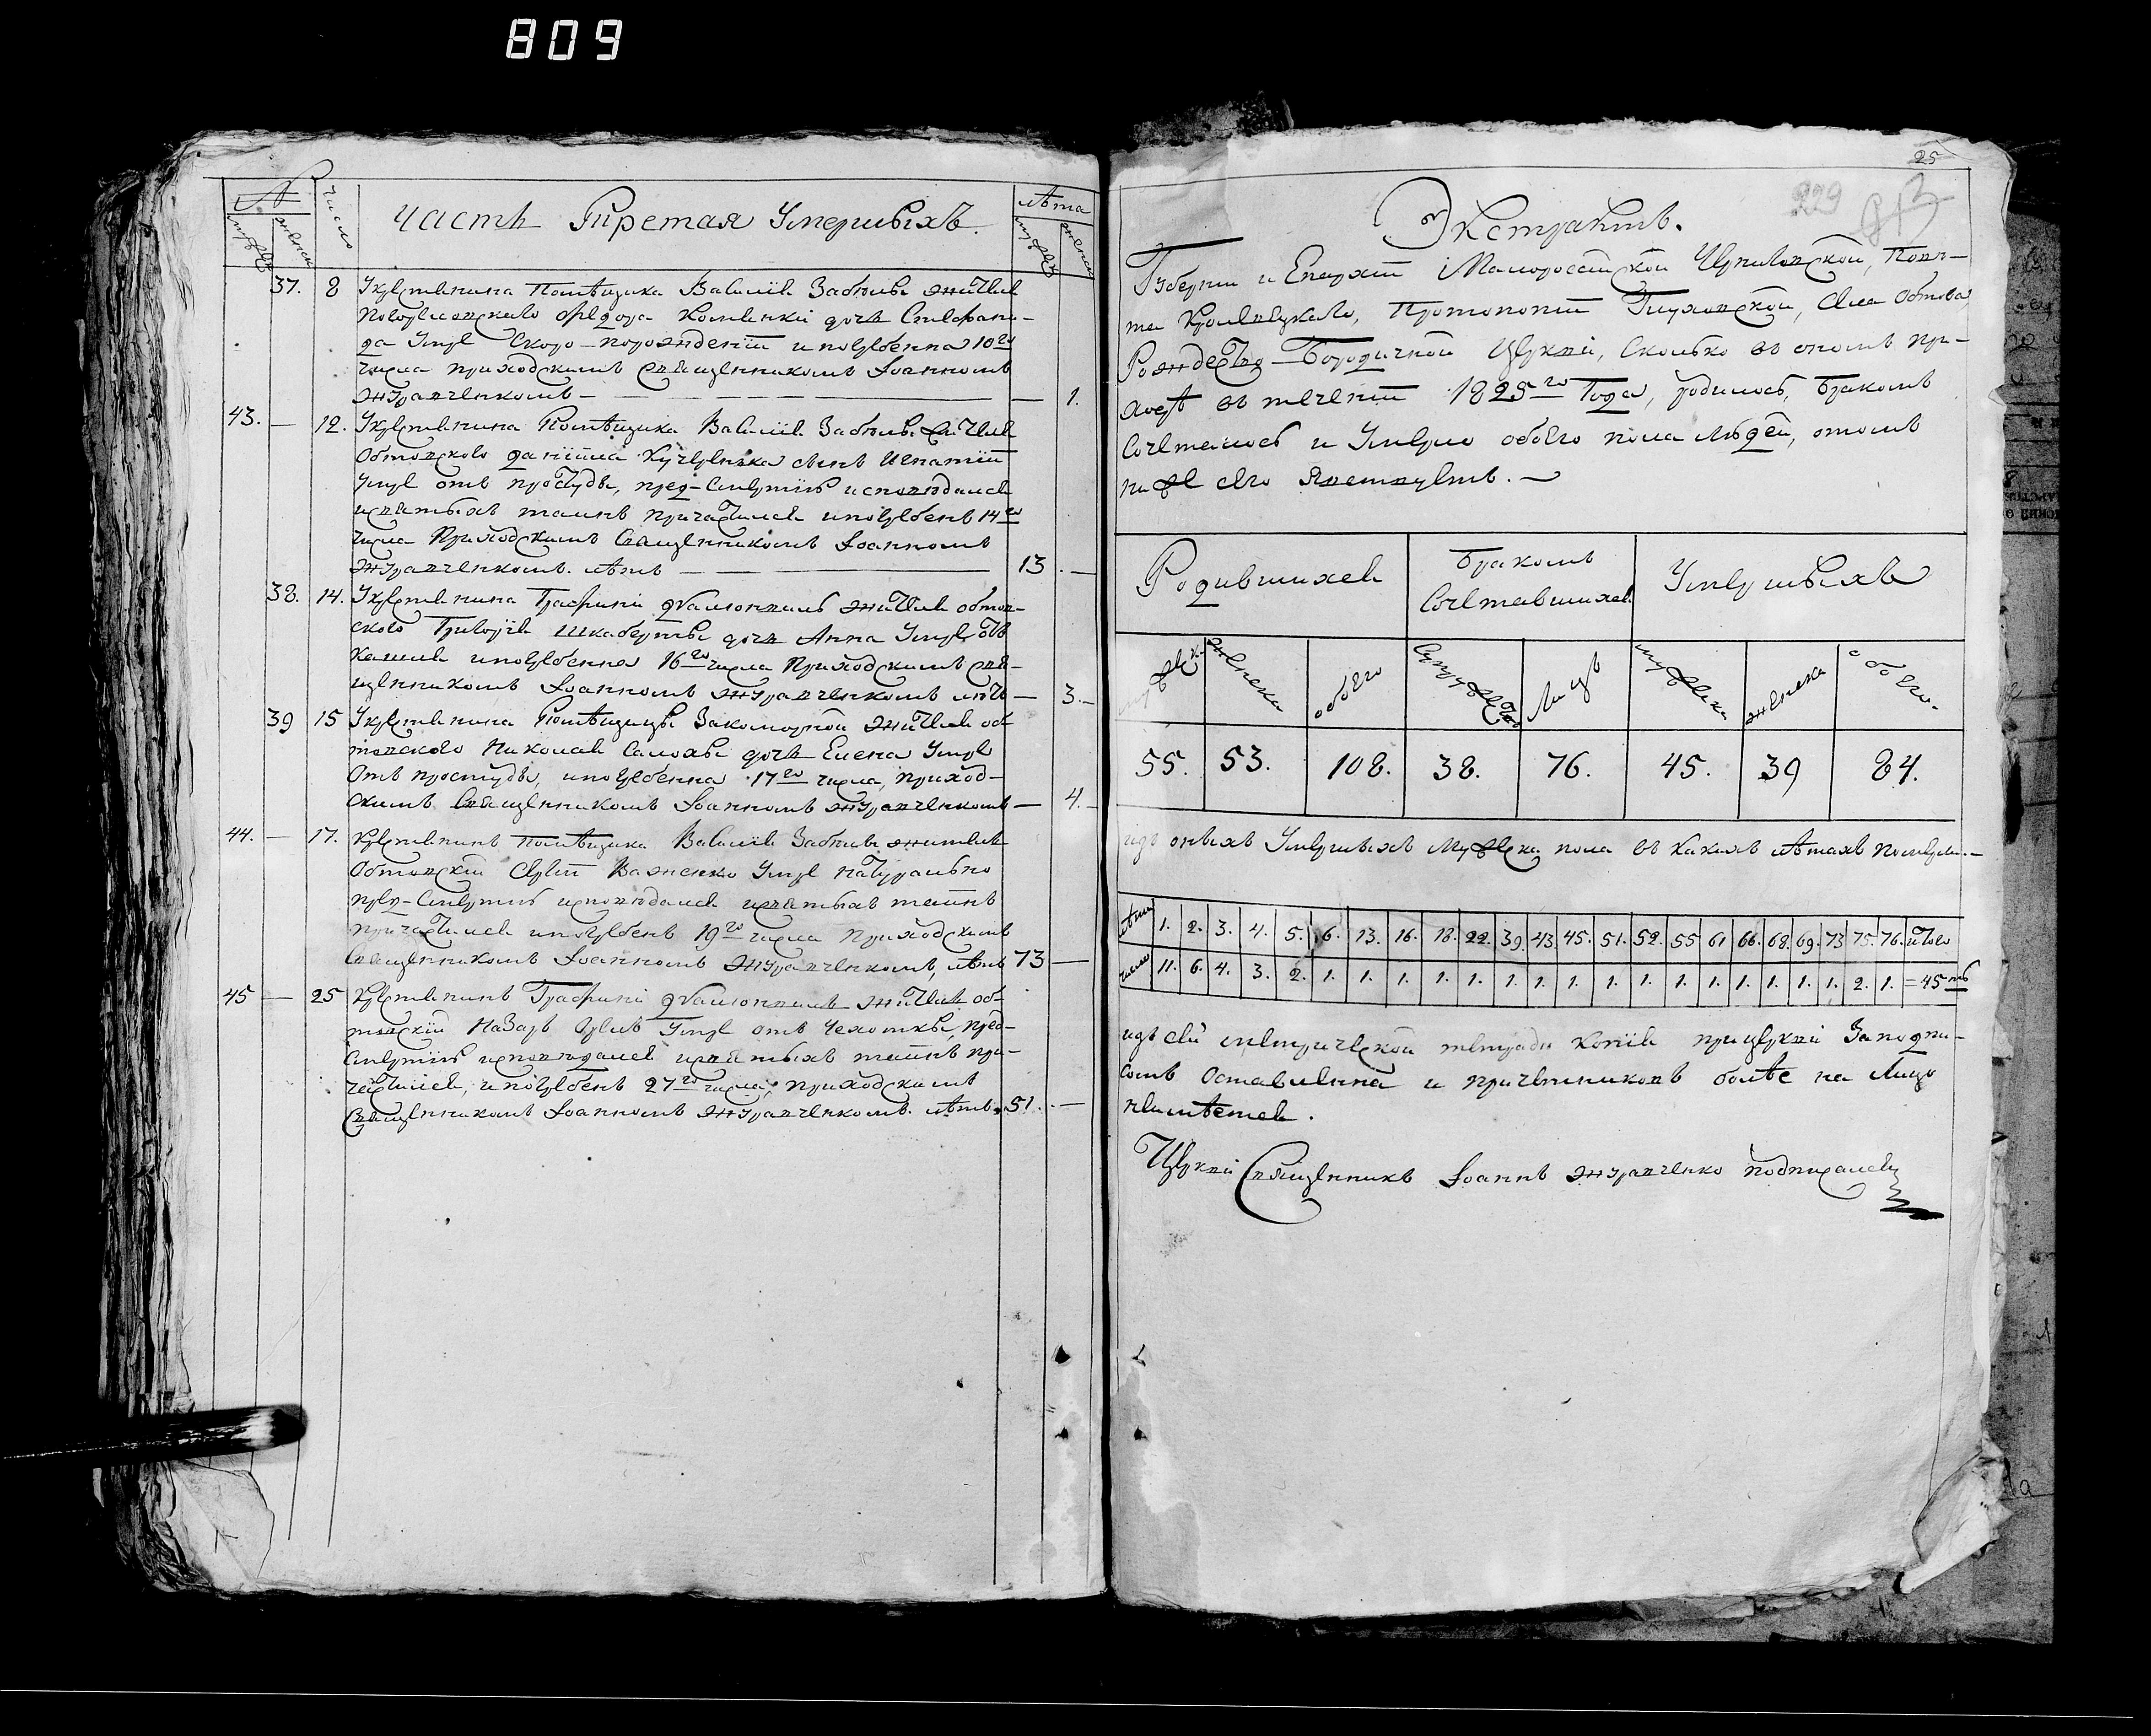 809
№ число Часть Третая Умершыхъ. лѣта
мужеск женск мужеск женск
37. 8 У крестянина Помѣщика Василія Забѣлы жителя
Федора дочь Стефани-
да Умре Скоро-порожденіи и погребенна 10го
числа приходскимъ Священникомъ Іоанномъ
Журавченкомъ — 1.
43. — 12. У крестянина Помѣщика Василія Забѣлы жителя
Обтовского Даніила Кучеренка сынъ Игнатій
Умре отъ простуды, пред-смертію исповѣдался
и святыхъ таинъ причастился и погребенъ 14го
числа Приходскимъ Священникомъ Іоанномъ
Журавченкомъ. лѣтъ — 13. —
38. 14. У крестянина Графини жителя обтов-
ского Григорія дочь Анна Умре отъ
кашля и погребенна 16го числа Приходскимъ свя-
щенникомъ Іоанномъ Журавченкомъ лѣтъ — 3. —
39 15 У крестянина Помѣщицы Закоморной жителя об-
товского Николая дочь Елена Умре
Отъ простуды, и погребенна 17го числа, приход-
скимъ Священникомъ Іоанномъ Журавченкомъ — 4. —
44. — 17. Крестянинъ помѣщика Василія Забѣлы житель
Обтовскій Важенко Умре Натурально
пред-смертію исповѣдался и святыхъ таинъ
причастился и погребенъ 19го числа Приходскимъ
Священникомъ Іоанномъ Журавченкомъ, лѣтъ 73 —
45 — 25 Крестянинъ Графини житель об-
товскій Назаръ Умре отъ Чехотки, пред-
смертію исповѣдался и святыхъ таинъ при-
частился, и погребенъ 27го числа, приходскимъ
Священникомъ Іоанномъ Журавченкомъ. лѣтъ. 51. —
25
229
Экстрактъ.
Губерніи и Епархіи Малороссійской Черниговской, Повѣ-
та Кролевецкаго, Протопопіи Глуховской, села Обтова
Рождество-Богородичной Церкви, Сколько въ ономъ при-
ходѣ въ теченіи 1825го Года, родилось, Бракомъ
Сочеталось и Умерло обоего пола людей, отомъ
ниже сего явствуетъ. —
Родившихся Бракомъ Сочетавшихся Умершыхъ
мужеска женска обоего Супружествъ Лицъ мужеска женска обоего.
55. 53. 108. 38. 76. 45. 39 84.
изъ оныхъ Умершыхъ Мужеска пола въ какихъ лѣтахъ Померли. —
лѣта 1. 2. 3. 4. 5. 6. 13. 16. 18. 22. 39. 43 45. 51. 52. 55 61 66. 68. 69. 73 75. 76. итого
число 11. 6. 4. 3. 2. 1. 1. 1. 1. 1. 1. 1. 1. 1. 1. 1. 1. 1. 1. 1. 1. 2. 1. = 45ть
изъ сей метрической тетради Копія при церкви За подпи-
сомъ Оставленна и причетниковъ болѣе на лицо
неимѣется.
Церкви Священникъ Іоаннъ Журавченко подписался